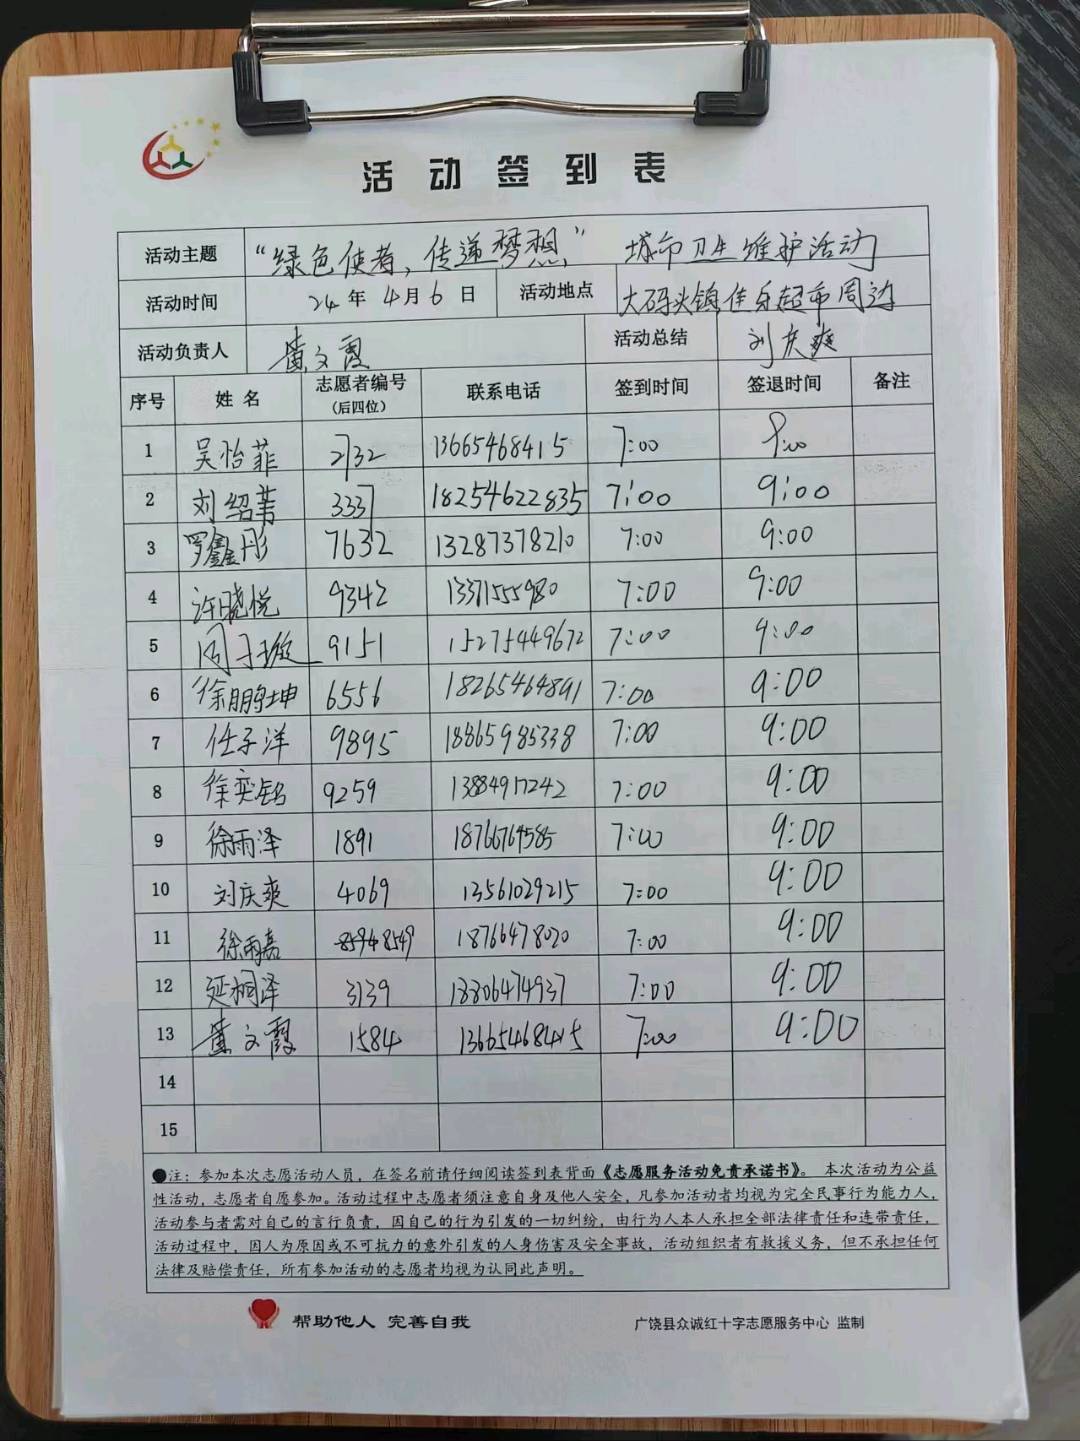 活动签到表
活动主题 “绿色使者，传递梦想” 城市卫生维护活动
活动时间 24年4月6日 活动地点 大码头镇佳乐超市周边
活动负责人 黄文霞 活动总结 刘庆爽
序号 姓名 志愿者编号（后四位） 联系电话 签到时间 签退时间 备注
1 吴怡菲 2732 13665468415 7:00 9:00
2 刘绍菁 3337 18254622835 7:00 9:00
3 罗鑫彤 7632 13287378210 7:00 9:00
4 许晓悦 9342 13371555980 7:00 9:00
5 周子璇 9151 15275449672 7:00 9:00
6 徐鹏坤 6556 18265464891 7:00 9:00
7 任子洋 9895 18865985338 7:00 9:00
8 徐奕铭 9259 13884917242 7:00 9:00
9 徐雨泽 1891 18766764585 7:00 9:00
10 刘庆爽 4069 13561029215 7:00 9:00
11 徐雨嘉 8549 18766478020 7:00 9:00
12 延桐泽 3139 18806474937 7:00 9:00
13 黄文霞 1584 13665468415 7:00 9:00
14
15
●注：参加本次志愿活动人员，在签名前请仔细阅读签到表背面《志愿服务活动免责承诺书》。本次活动为公益
性活动，志愿者自愿参加。活动过程中志愿者须注意自身及他人安全，凡参加活动者均视为完全民事行为能力人，
活动参与者需对自己的言行负责，因自己的行为引发的一切纠纷，由行为人本人承担全部法律责任和连带责任，
活动过程中，因人为原因或不可抗力的意外引发的人身伤害及安全事故，活动组织者有救援义务，但不承担任何
法律及赔偿责任，所有参加活动的志愿者均视为认同此声明。
帮助他人 完善自我
广饶县众诚红十字志愿服务中心 监制